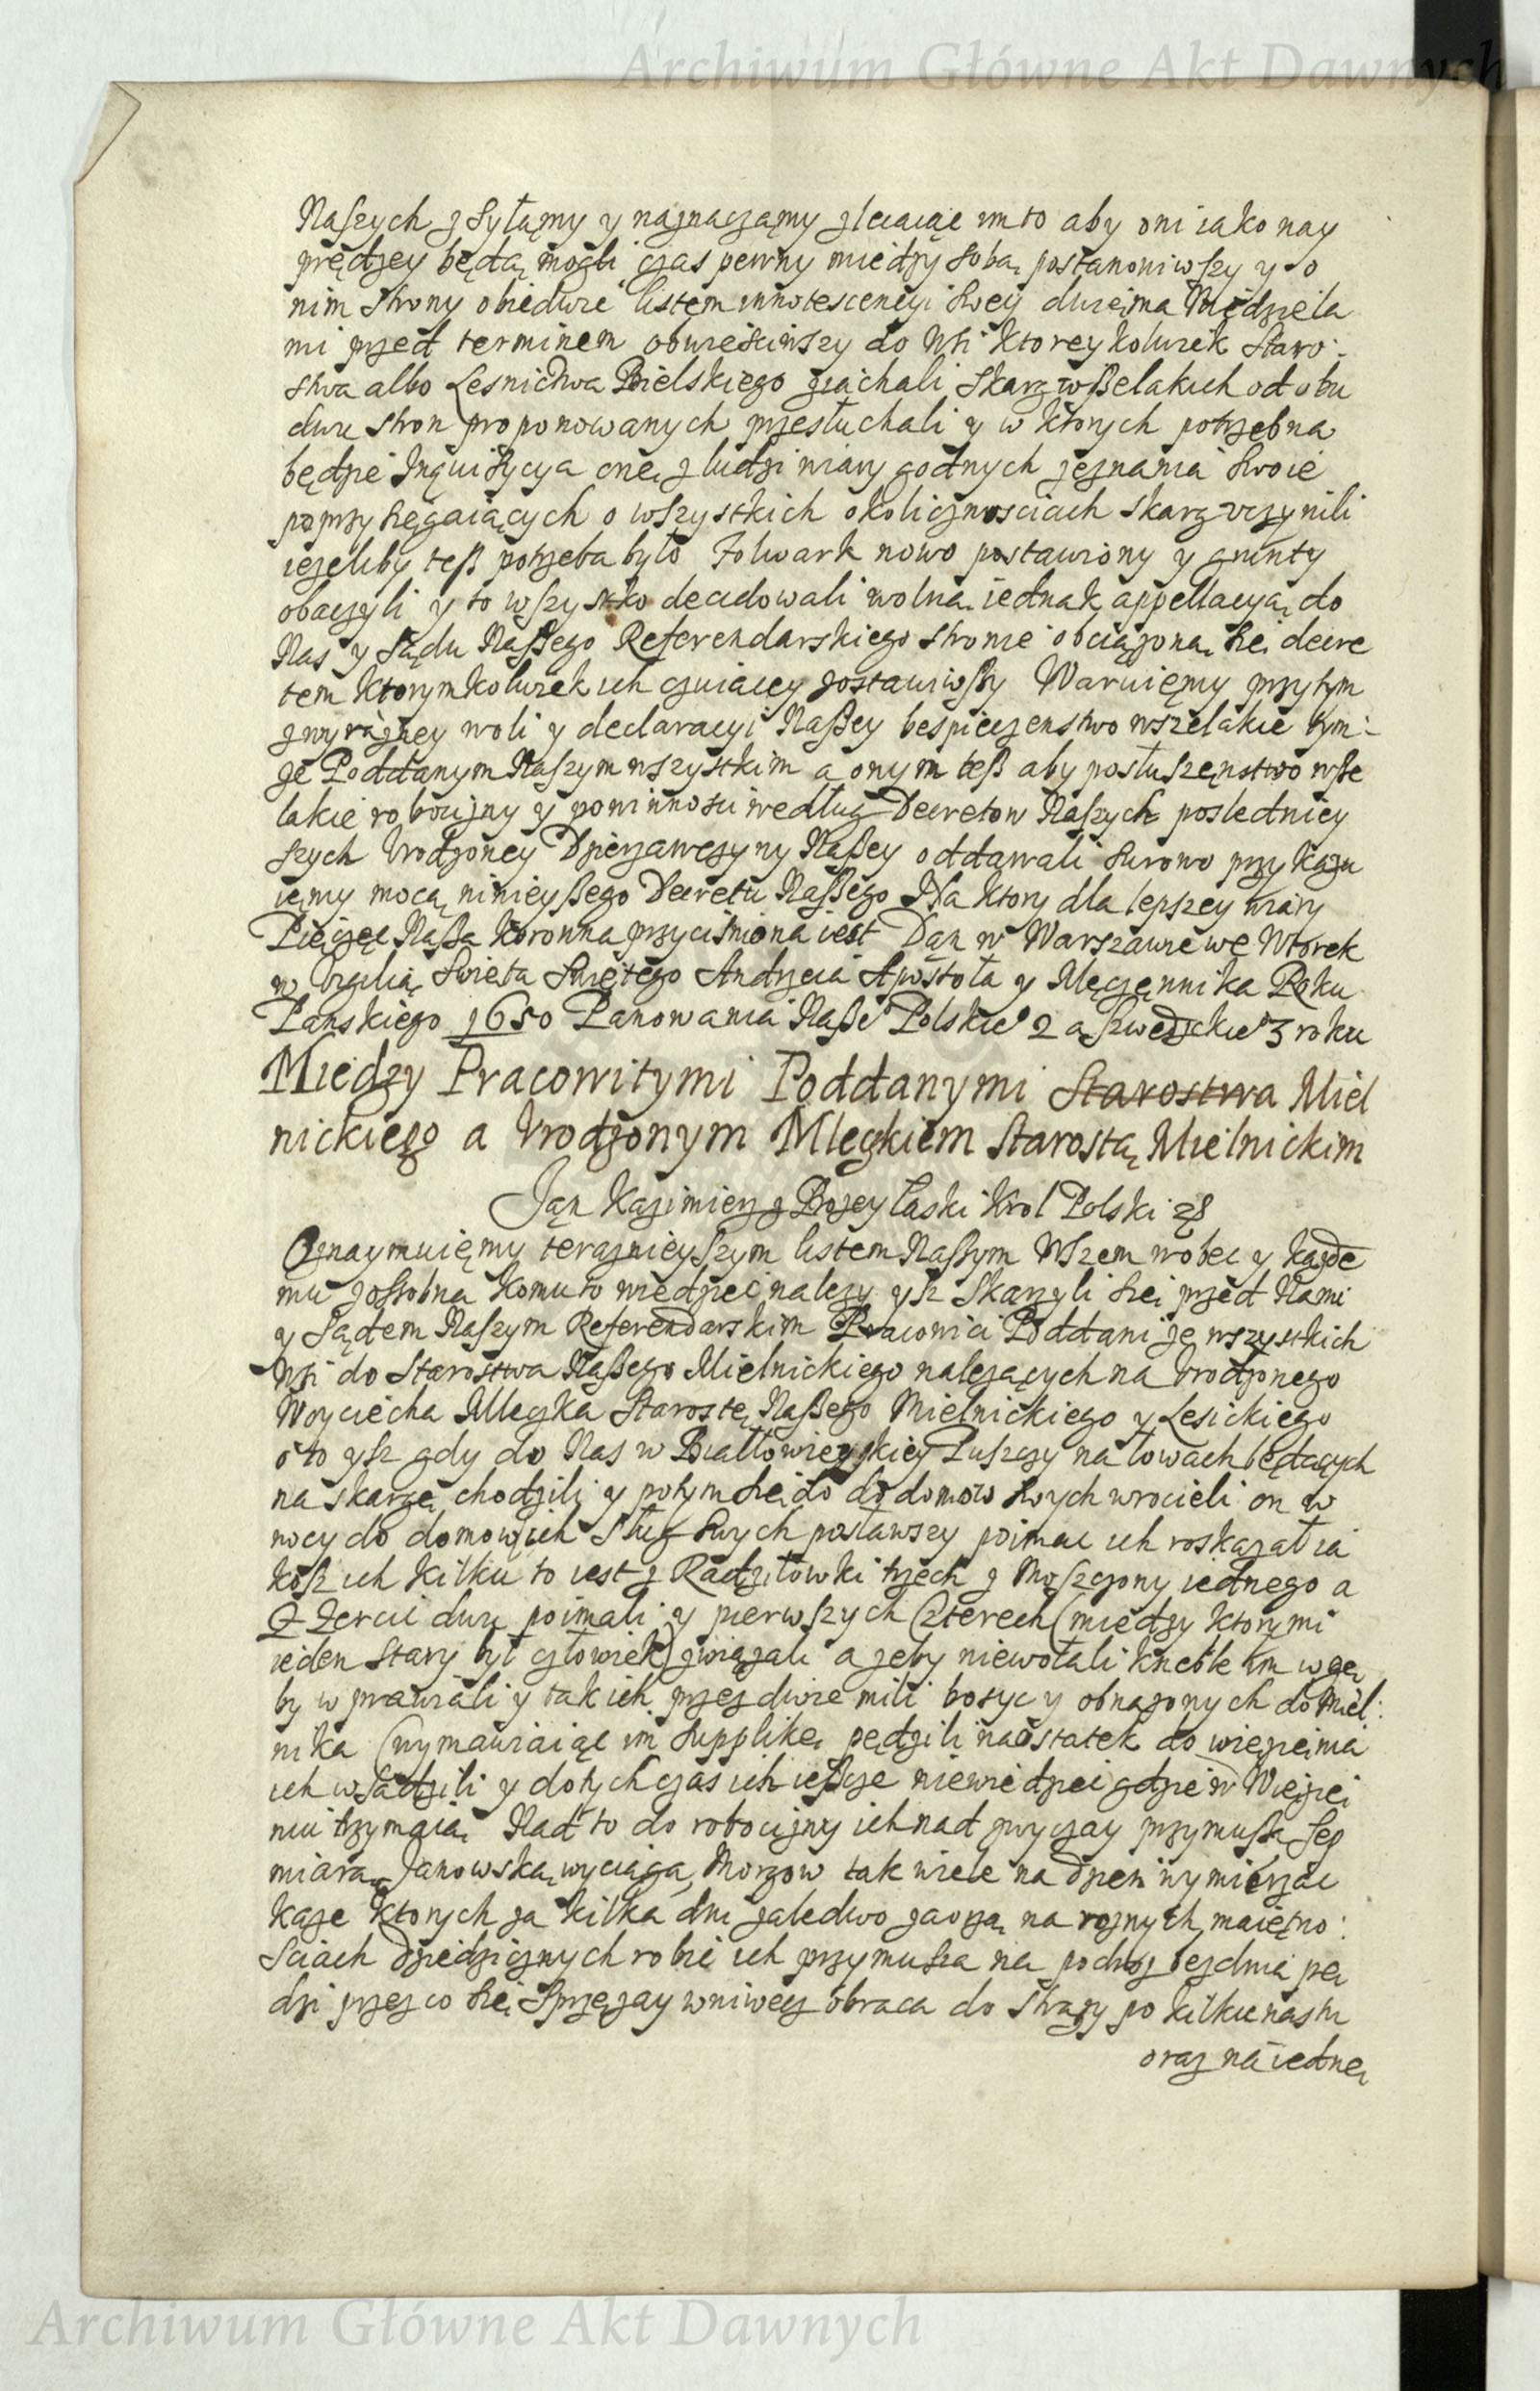 Archiwum Główne Akt Dawnych
Naszych zsyłamy y naznaczamy zlecaiąc im to aby oni iako nay
prędzey będą mogli czas pewny miedzy sobą postanowiwszy y o
nim strony obiedwie listem innotescencyi swey dwiema Niedziela
mi przed terminem obwieściwszy do Wsi ktorey kolwiek Staro:
stwa albo Lesnictwa Bielskiego ziachali Skarg wszelakich od obu
dwu stron proponowanych przesłuchali y w ktorych potrzebna
będzie Inquisycya onę z ludzi wiary godnych zeznania swoie
poprzysięgaiących o wszystkich okolicznosciach skarg vczynili
ieżeliby tesz potrzeba było Folwark nowo postawiony y grunty
obaczyli y to wszystko decidowali wolną iednak appellacyą do
Nas y Sądu Naszego Referendarskiego stronie obciążoną się decre
tem ktorymkolwiek ich czuiącey zostawiwszy Waruięmy przytym
z wyraźney woli y declaracyi Naszey bespieczenstwo wszelakie tym:
że Poddanym Naszym wszystkim a onym tesz aby posłuszęnstwo wsze
lakie robocizny y powinnosci według Decretow Naszych posledniey
szych Vrodzoney Dzierzawczyny Naszey oddawali surowo przykazu
ięmy mocą ninieyszego Decretu Naszego Na ktory dla lepszey wiary
Pieczęć Nasza Koronna przycisniona iest Dan w Warszawie we Wtorek
w Vigilią Swięta Swiętego Andrzeia Apostoła y Męczęnnika Roku
Panskiego 1650 Panowania Nasze° Polskie° 2 a szwedzkie° 3 roku
Miedzy Pracowitymi Poddanymi Starostwa Miel
nickiego a Vrodzonym Mleczkiem Starostą Mielnickim
Jan Kazimierz z Bożey Łaski Krol Polski &
Oznaymuięmy terazniey szym listem Naszym Wszem wobec y każde
mu zossobna komu to wiedziec nalezy ysz Skarżyli się przed Nami
y Sądem Naszym Referendarskim Pracowici Poddani ze wszystkich
Wsi do Starostwa Naszego Mielnickiego należących na Vrodzonego
Woyciecha Mleczka Starostę Naszego Mielnickiego y Łosickiego
o to ysz gdy do Nas w Białłowieyskiey Puszczy na łowach będących
na skargę chodzili y potym się do do domow swych wrocieli on w
nocy do domow ich Sług swych posławszy poimac ich roskazał ia
kosz ich kilku to iest z Radziłowki trzech z Moszczony iednego a
Z Zerci dwu poimali y pierwszych Czterech (miedzy ktorymi
ieden stary był człowiek) związali a żeby niewołali kneble im w gę
by wprawiali y tak ich przez dwie mili bosyc y obnażonych do Miel:
nika (wymawiaiąc im supplikę pędzili na ostatek do więzienia
ich wsadzili y dotychczas ich ieszcze niewiedziec gdzie w Więzie
niu trzymaią Nad to do robocizny ich nad zwyczay przymusza seg
miarą Janowską wyciąga Morgow tak wiele na dzien wymierzac
każe ktorych za kilka dni zaledwo zaorzą na roznych maiętno:
sciach dziedzicznych robic ich przymusza na podroz bez dnia pę
dzi przez co się Sprzężay wniwecz obraca do straży po kilkunastu
oraz na iednę
Archiwum Główne Akt Dawnych